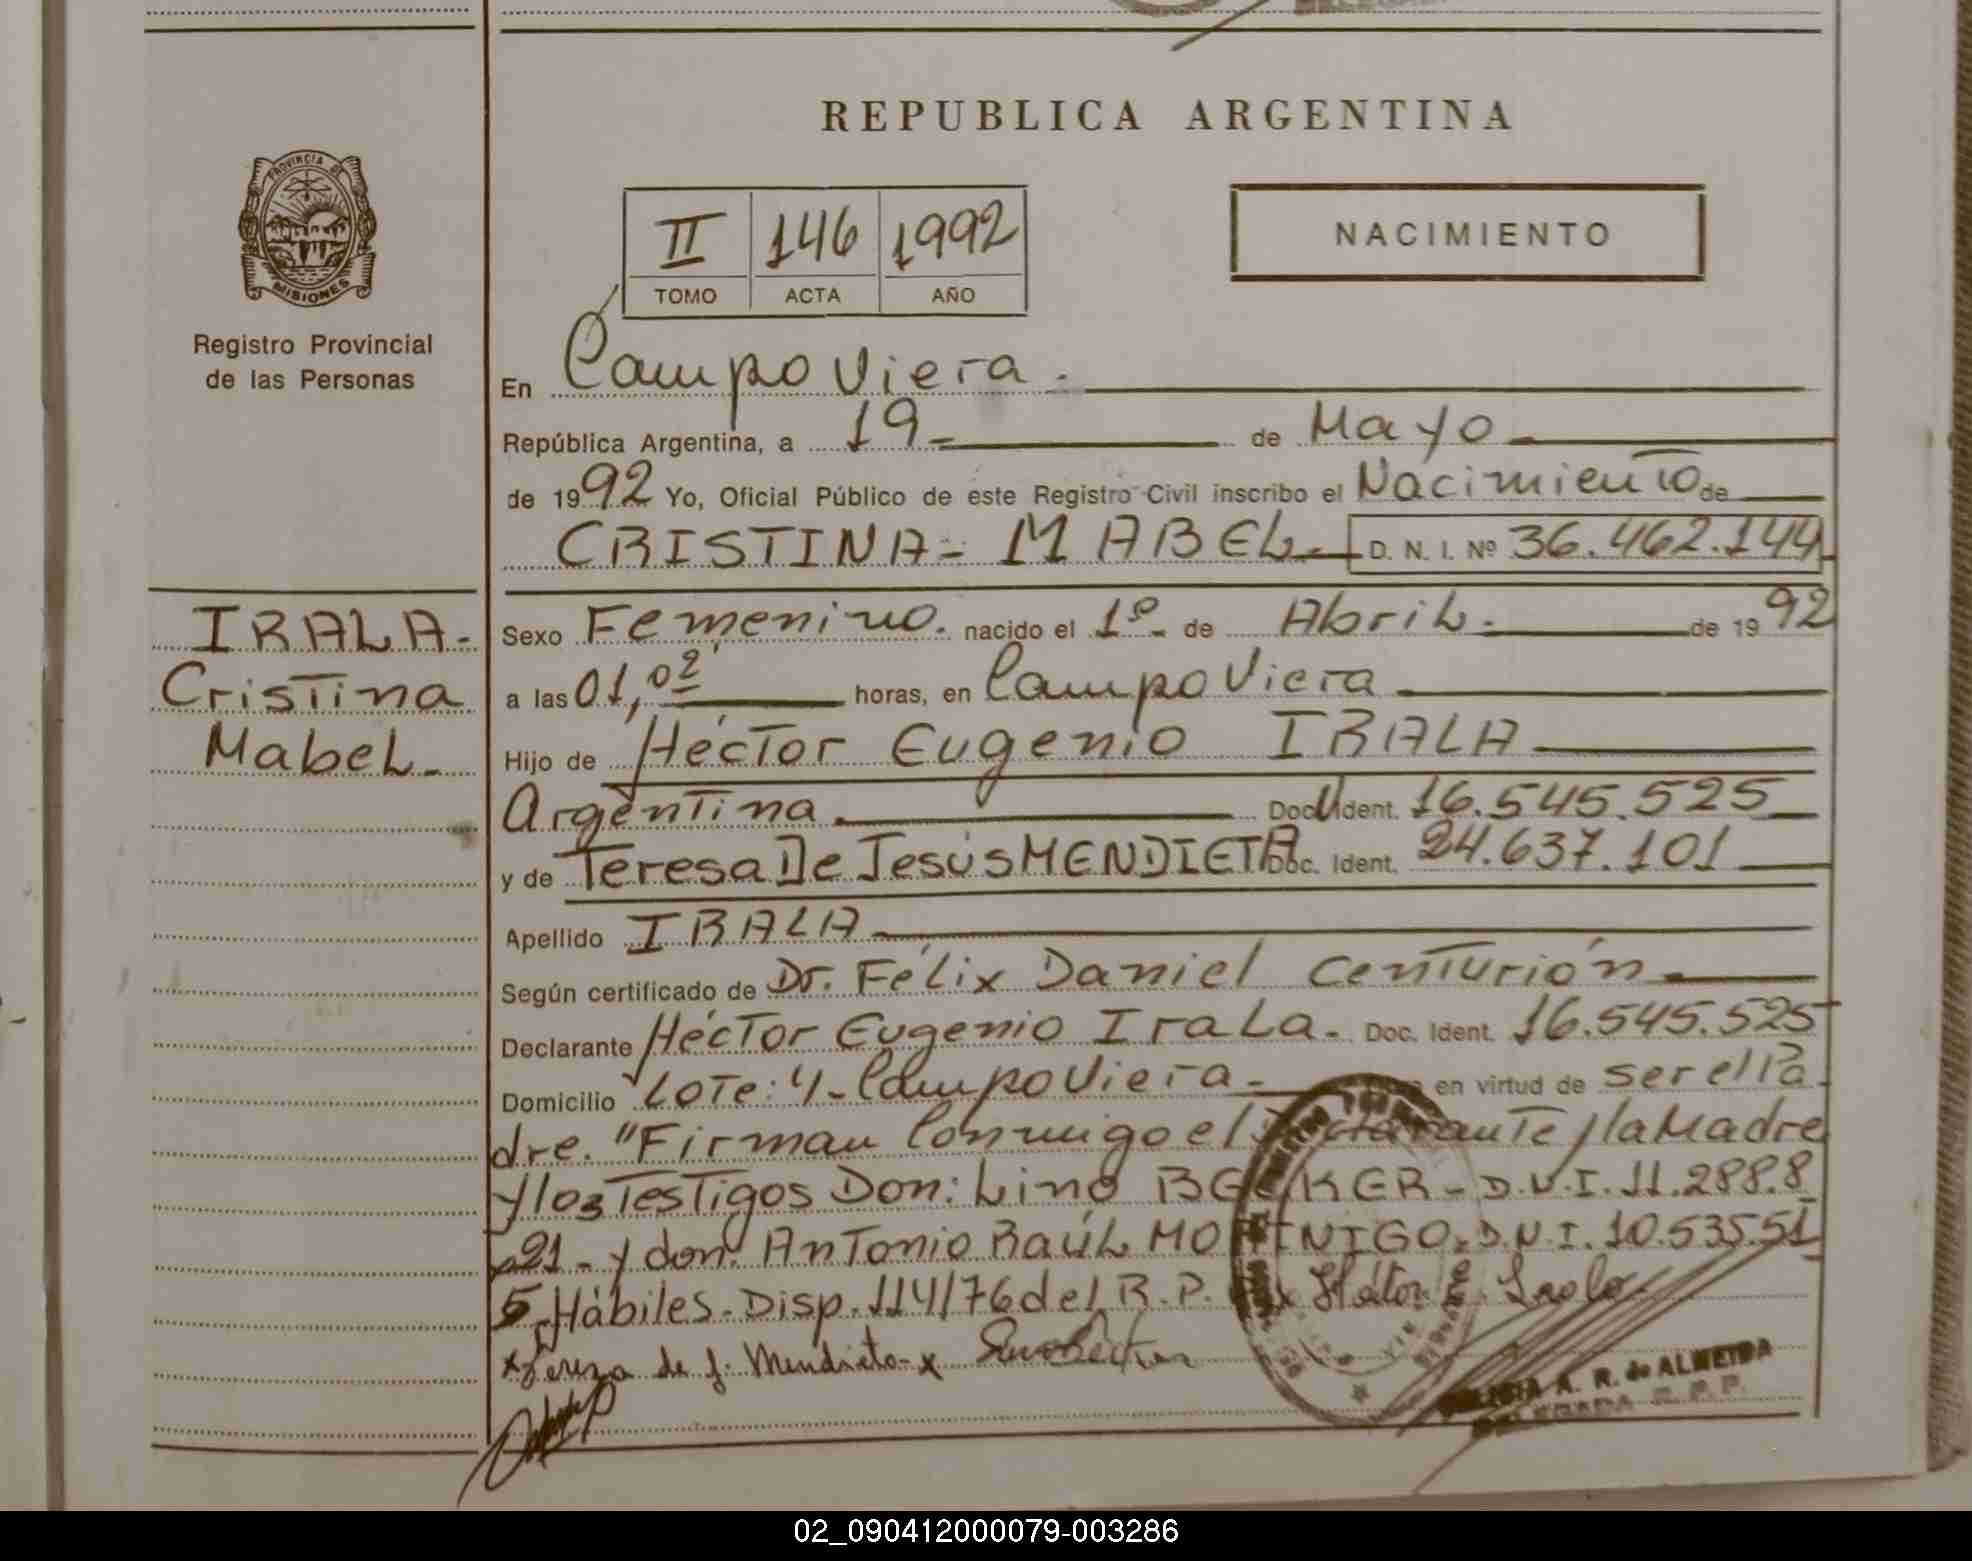 REPUBLICA ARGENTINA
PROVINCIA DE
MISIONES
Registro Provincial
de las Personas
II 146 1992
TOMO ACTA AÑO
NACIMIENTO
En Campo Viera.
República Argentina, a 19 de Mayo
de 1992 Yo, Oficial Público de este Registro Civil inscribo el Nacimiento de
CRISTINA MABEL D. N. I. Nº 36.462.144
IRALA
Cristina
Mabel
Sexo Femenino. nacido el 1º de Abril. de 1992
a las 01,02 horas, en Campo Viera
Hijo de Héctor Eugenio IRALA
Argentina Doc. Ident. 16.545.525
y de Teresa De Jesús MENDIETA Doc. Ident. 24.637.101
Apellido IRALA
Según certificado de Dr. Félix Daniel Centurión
Declarante Héctor Eugenio Irala. Doc. Ident. 16.545.525
Domicilio Lote: 4- Campo Viera en virtud de ser el Pa
dre. "Firman Conmigo el Declarante y la Madre
y los Testigos Don: Lino BECKER- D.N.I. 11.288.8
21- y don: Antonio Raúl MORINIGO. D.N.I. 10.535.51
5 Hábiles-Disp. 114/76 del R.P.
x Teresa de J. Mendieta-x
A. R. de ALMEIDA
02_090412000079-003286